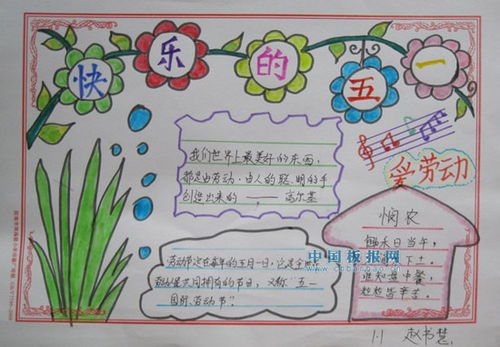 快乐的五一
我们世界上最美好的东西,
都是由劳动·由人的聪明的手
创造出来的——高尔基
爱劳动
悯农
锄禾日当午,
下土。
谁知盘中餐,
粒粒皆辛苦。
劳动节定在每年的五月一日,它是全世界
劳动人民共同拥有的节日,又称“五一
国际劳动节”。
中国板报网
1.1 赵书慧